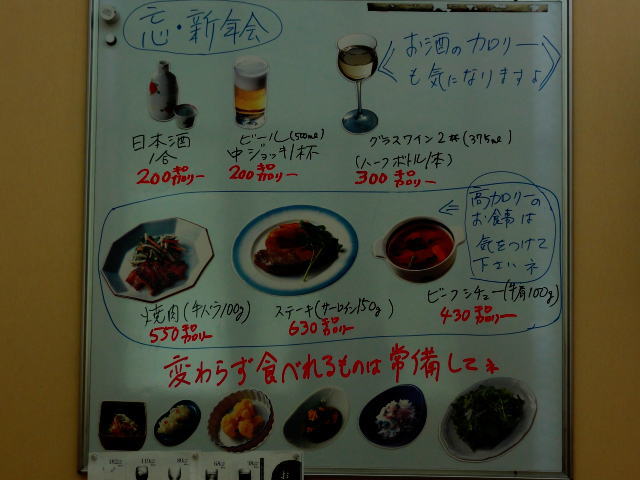 忘・新年会
お酒のカロリー
も気になりますよ
日本酒
1合
200キロカロリー
ビール(500ml)
中ジョッキ1杯
200キロカロリー
グラスワイン2杯(375ml)
(ハーフボトル1本)
300キロカロリー
高カロリーの
お食事は
気をつけて
下さいネ
焼肉(牛バラ100g)
550キロカロリー
ステーキ(サーロイン150g)
630キロカロリー
ビーフシチュー(牛肩100g)
430キロカロリー
変わらず食べれるものは常備してネ